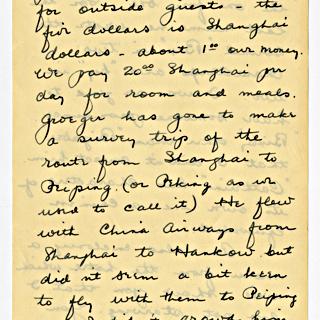 for outside guests - the
five dollars is Shanghai
dollars - about 1⁰⁰ our money.
We pay 20⁰⁰ Shanghai per
day for room and meals.
Groeger has gone to make
a survey trip of the
route from Shanghai to
Peiping. (or Peking as we
used to call it) He flew
with China Airways from
Shanghai to Hankow but
didn't seem a bit keen
to fly with them to Peiping